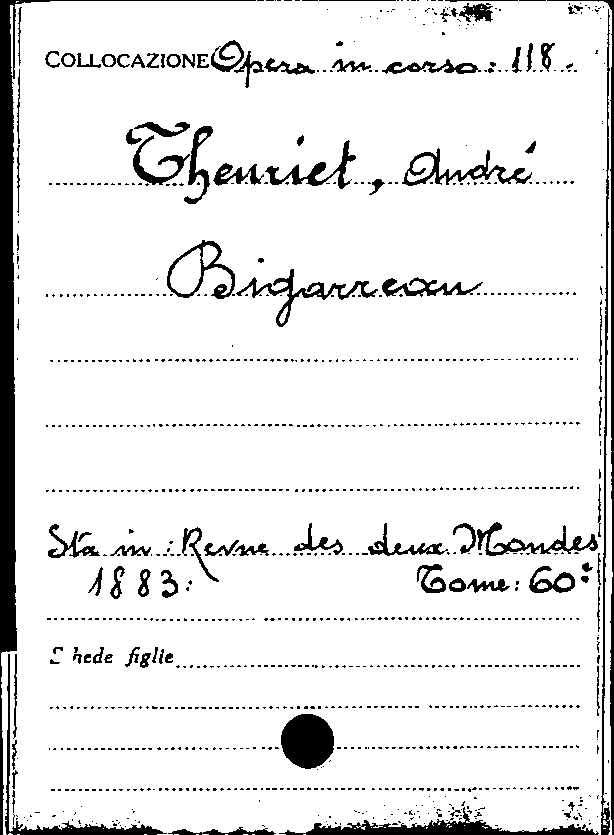 COLLOCAZIONE Opera in corso: 118.
Theuriet, André
Bigarreau
Sta in: Revue des deux Mondes
1883: Tome: 60:
Schede figlie